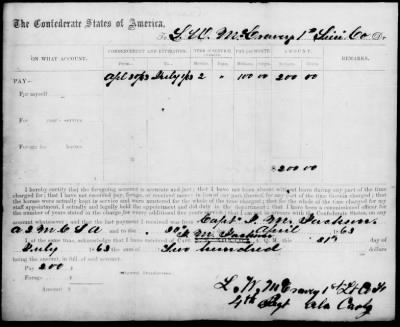 The Confederate States of America,
To L. W. McCravey 1st Lieut Co Dr
ON WHAT ACCOUNT. COMMENCEMENT AND EXPIRATION. PAY PER MONTH AMOUNT. REMARKS.
From— To— Months. Days.
PAY— Apl 30/63 2 " 100 00 200 00
For myself
For servant
Forage for horses
$200 00
I hereby certify that the foregoing account is accurate and just; that I have not been absent without leave during any part of the
time charged; that I have not received pay, forage, or received money in lieu of any part thereof, for any part of the time therein charged; that
the horses were actually kept in service and were mustered for the whole of the time charged; that for the whole of the time charged for my
staff appointment, I actually and legally held the appointment and did duty in the department; that I have been a commissioned officer for
the number of years stated in the charge for every additional five years service; that I am not in arrears with the Confederate States, on any
account whatsoever; and that the last payment I received was from Capt.
A Q M C S A and to the 30th day of April 1863
I at the same time, acknowledge that I have received of Capt. M. A. Q. M. this 31st day of
July 1863 Two hundred dollars,
being the amount, in full, of said account.
Pay 200
Forage
Amount $
4th Regt Ala